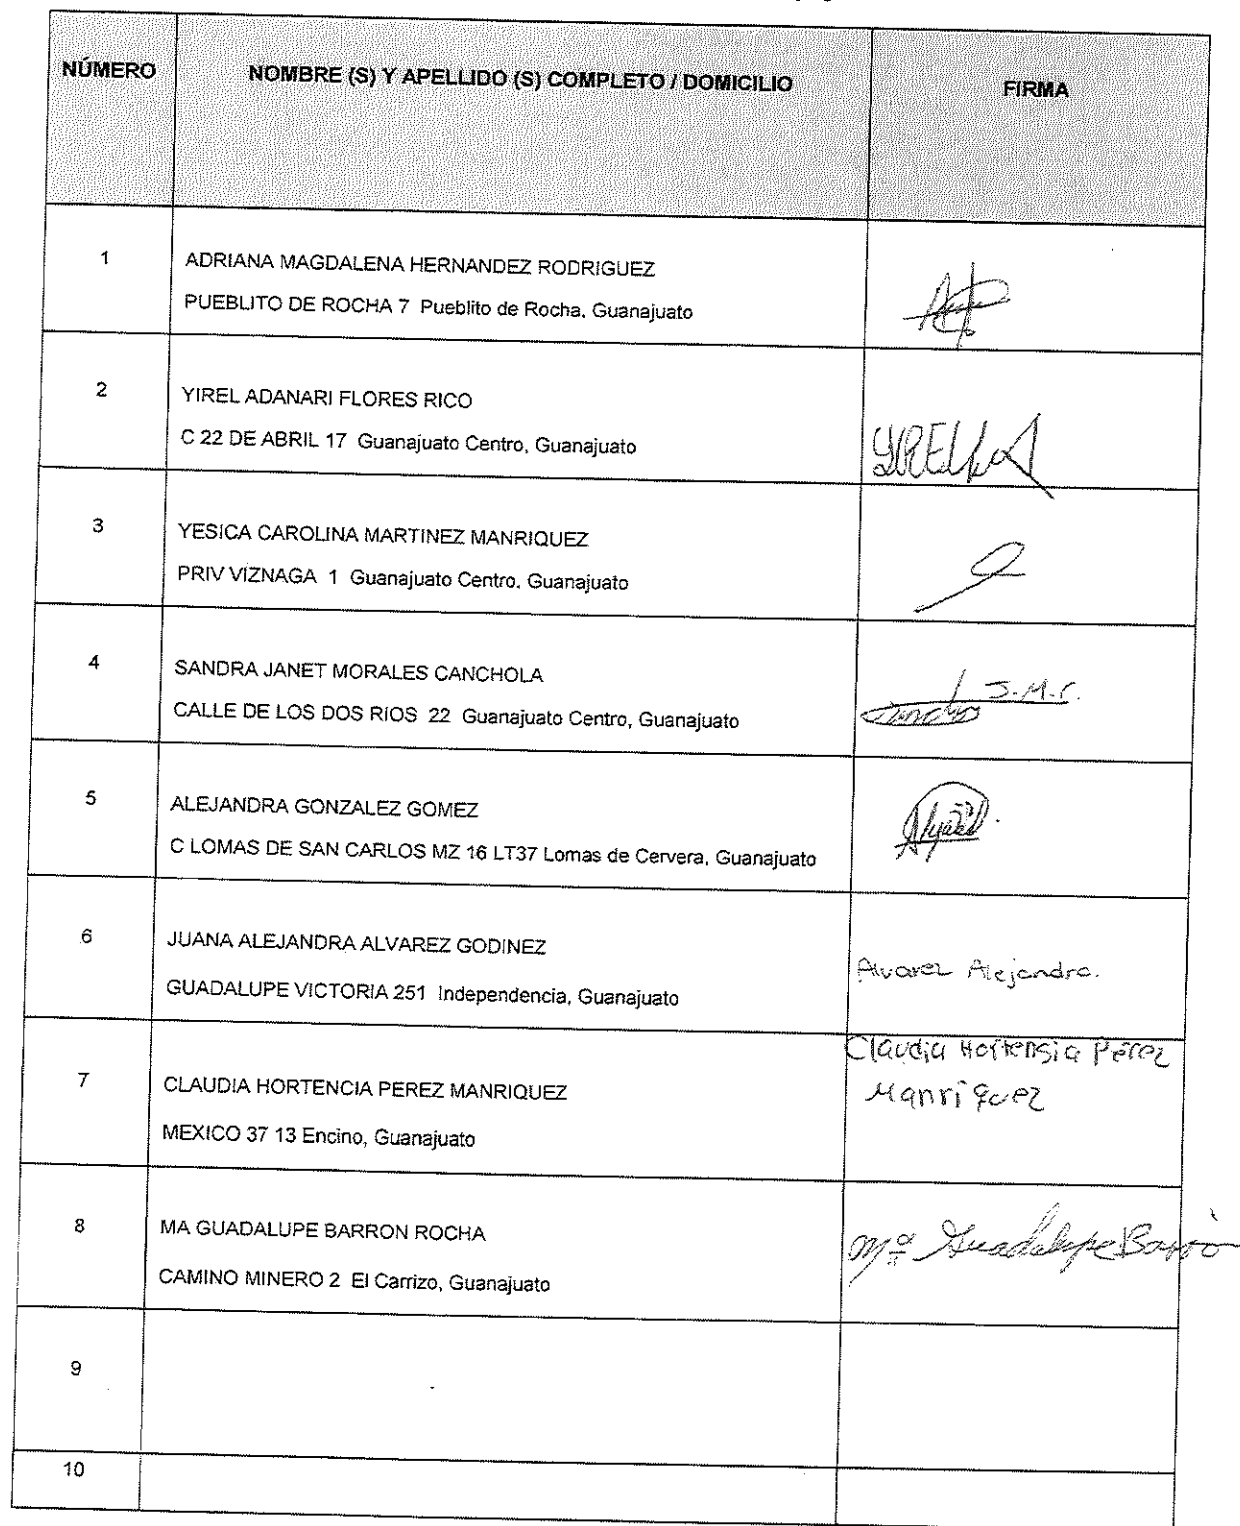 NÚMERO
NOMBRE (S) Y APELLIDO (S) COMPLETO / DOMICILIO
FIRMA
1
ADRIANA MAGDALENA HERNANDEZ RODRIGUEZ
PUEBLITO DE ROCHA 7 Pueblito de Rocha, Guanajuato
2
YIREL ADANARI FLORES RICO
C 22 DE ABRIL 17 Guanajuato Centro, Guanajuato
3
YESICA CAROLINA MARTINEZ MANRIQUEZ
PRIV VIZNAGA 1 Guanajuato Centro, Guanajuato
4
SANDRA JANET MORALES CANCHOLA
CALLE DE LOS DOS RIOS 22 Guanajuato Centro, Guanajuato
S.M.C.
5
ALEJANDRA GONZALEZ GOMEZ
C LOMAS DE SAN CARLOS MZ 16 LT37 Lomas de Cervera, Guanajuato
6
JUANA ALEJANDRA ALVAREZ GODINEZ
GUADALUPE VICTORIA 251 Independencia, Guanajuato
Alvarez Alejandra.
7
CLAUDIA HORTENCIA PEREZ MANRIQUEZ
MEXICO 37 13 Encino, Guanajuato
Claudia Hortensia Pérez
Manriquez
8
MA GUADALUPE BARRON ROCHA
CAMINO MINERO 2 El Carrizo, Guanajuato
Mª Guadalupe Barrón
9
10